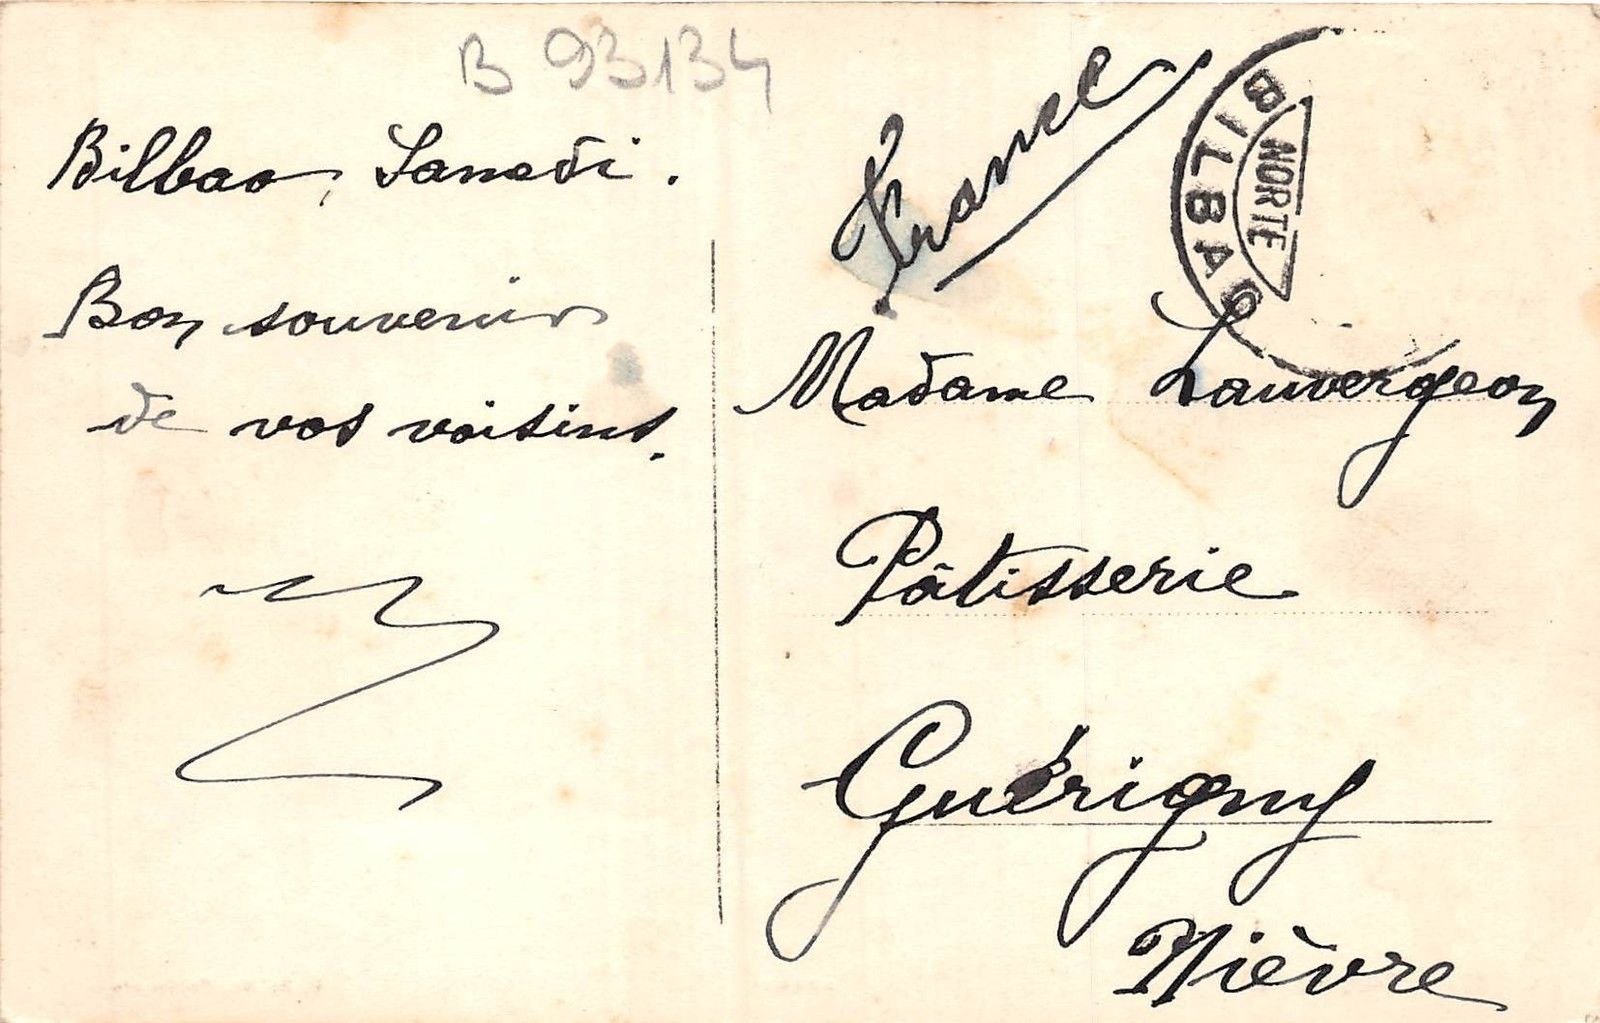 B 93134
Bilbao, Samedi.
Bon souvenir
de vos voisins.
France
BILBAO
NORTE
Madame Lauvergeon
Pâtisserie
Guérigny
Nièvre